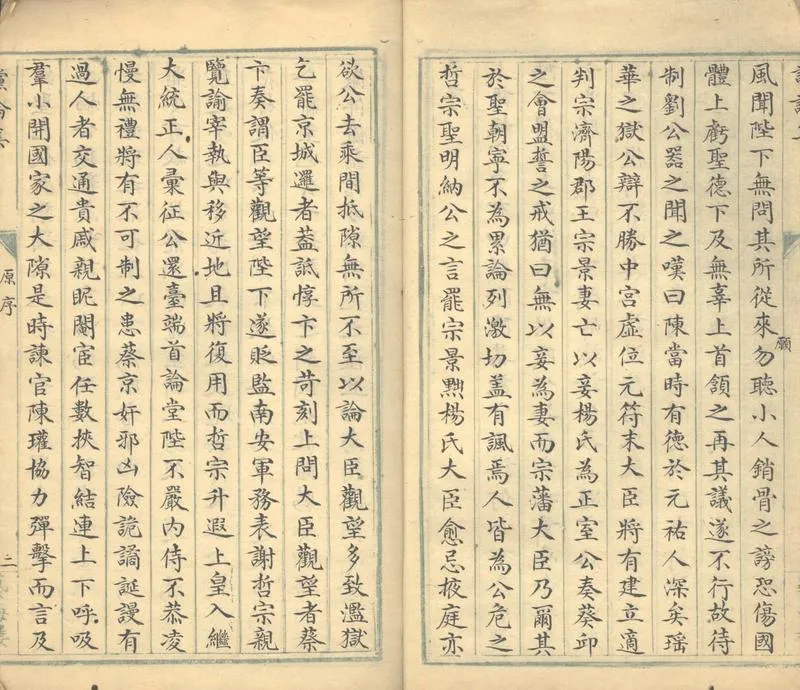 風聞陛下無問其所從來勿聽小人銷骨之謗恐傷國
願
體上虧聖德下及無辜上首領之再其議遂不行故待
制劉公器之聞之嘆曰陳當時有德於元祐人深矣瑶
華之獄公辯不勝中宮虛位元符末大臣將有建立適
判宗濟陽郡王宗景妻亡以妾楊氏為正室公奏葵卭
之會盟誓之戒猶曰無以妾為妻而宗藩大臣乃爾其
於聖朝寧不為累論列激切盖有諷焉人皆為公危之
哲宗聖明納公之言罷宗景黜楊氏大臣愈忌掖庭亦
欲公去乘間抵隙無所不至以論大臣觀望多致濫獄
乞罷京城邏者蓋詆惇卞之苛刻上問大臣觀望者蔡
卞奏謂臣等觀望陛下遂貶監南安軍務表謝哲宗親
覽諭宰執與移近地且將復用而哲宗升遐上皇入繼
大統正人彙征公還臺端首論堂陛不嚴內侍不恭凌
慢無禮將有不可制之患蔡京奸邪凶險詭譎誕謾有
過人者交通貴戚親昵閹宦任數挾智結連上下呼吸
羣小開國家之大隙是時諫官陳瓘協力彈擊而言及
原序
二